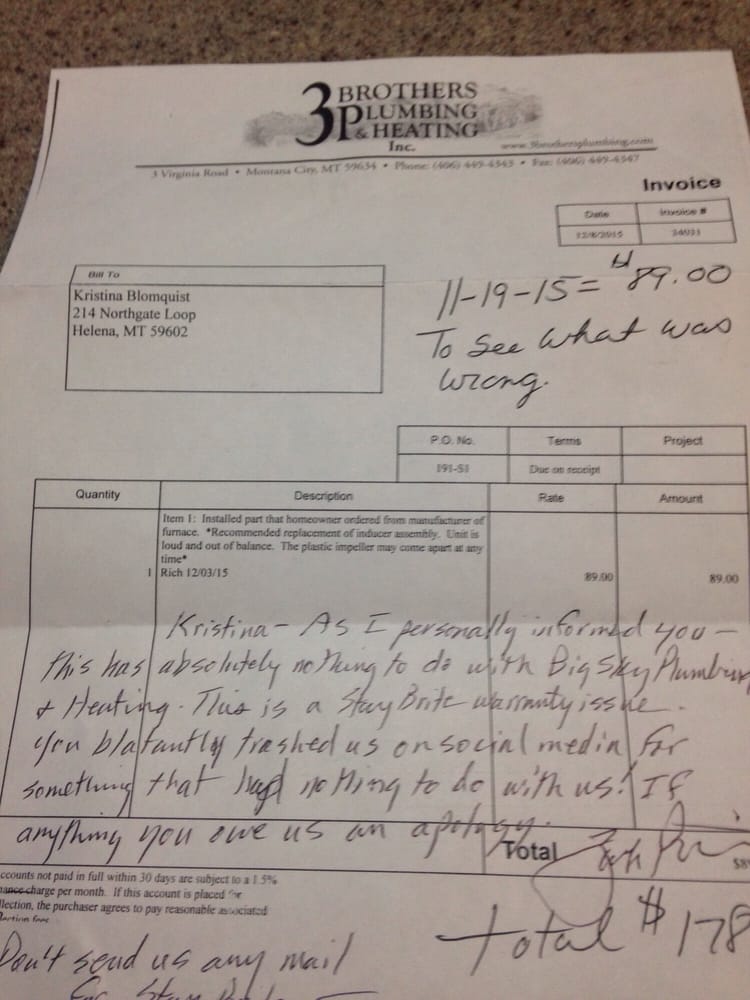 3 BROTHERS
PLUMBING
& HEATING
Inc.
www.3brothersplumbing.com
3 Virginia Road • Montana City, MT 59634 • Phone: (406) 449-4343 • Fax: (406) 449-4347
Invoice
Date Invoice #
12/8/2015
Bill To
Kristina Blomquist
214 Northgate Loop
Helena, MT 59602
11-19-15 = $89.00
To see what was
wrong.
P.O. No. Terms Project
191-51 Due on receipt
Quantity Description Rate Amount
Item 1: Installed part that homeowner ordered from manufacturer of
furnace. *Recommended replacement of inducer assembly. Unit is
loud and out of balance. The plastic impeller may come apart at any
time*
1 Rich 12/03/15 89.00 89.00
Kristina - As I personally informed you -
this has absolutely nothing to do with Big Sky Plumbing
& Heating. This is a Stay Brite warranty issue.
You blatantly trashed us on social media for
something that had nothing to do with us! If
anything you owe us an apology.
Total $89
ccounts not paid in full within 30 days are subject to a 1.5%
nance charge per month. If this account is placed for
llection, the purchaser agrees to pay reasonable associated
llection fees
Total $178
Don't send us any mail
for Stay